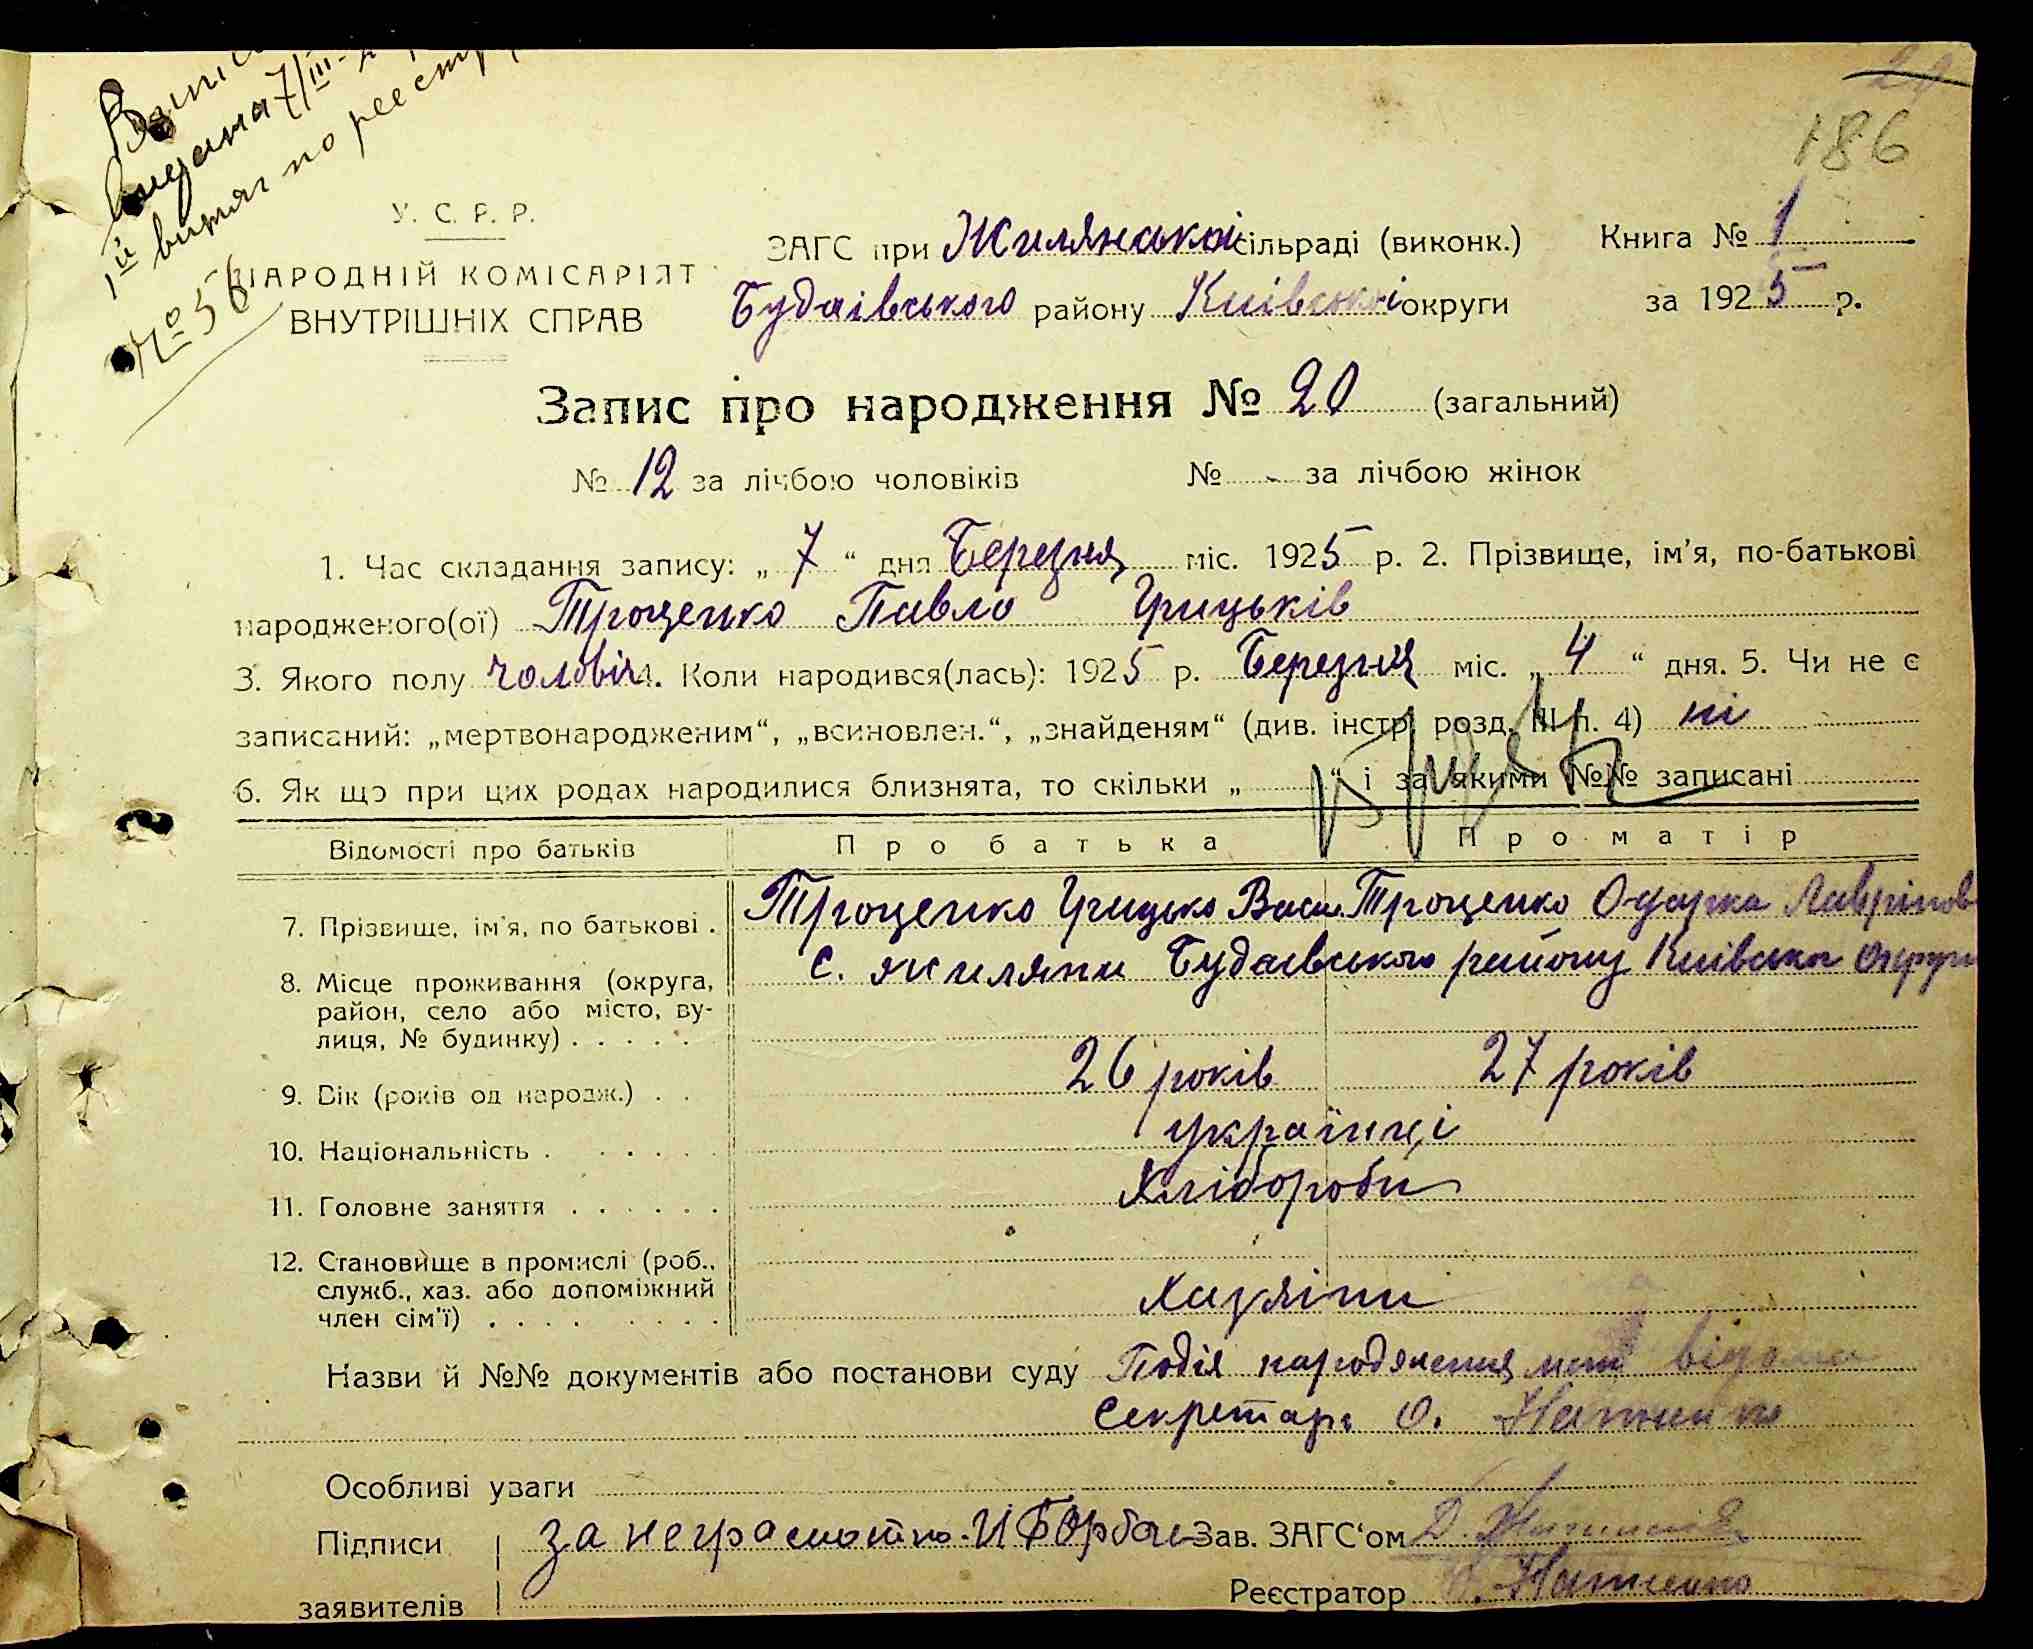 видана 7/III
1й витяг по реестр
№ 56
186
У. С. Р. Р.
НАРОДНІЙ КОМІСАРІЯТ
ВНУТРІШНІХ СПРАВ
ЗАГС при Жилянській сільраді (виконк.)
Будаівського району Київської округи
Книга № 1
за 1925 р.
Запис про народження № 20 (загальний)
№ 12 за лічбою чоловіків № - за лічбою жінок
1. Час складання запису: „ 7 “ дня Березня міс. 1925 р. 2. Прізвище, ім'я, по-батькові
народженого(ої) Троценко Павло Грицьків
3. Якого полу чоловіч 4. Коли народився(лась): 1925 р. Березня міс. „ 4 “ дня. 5. Чи не є
записаний: „мертвонародженим“, „всиновлен.“, „знайденям“ (див. інстр. розд. III п. 4) ні
6. Як що при цих родах народилися близнята, то скільки „ “ і за якими №№ записані
Відомості про батьків Про батька Про матір
7. Прізвище, ім'я, по батькові . Троценко Грицько Васил. Троценко Одарка Лаврінов
8. Місце проживання (округа, с. Жиляни Будаівського району Київська округи
район, село або місто, ву-
лиця, № будинку) . . . . .
9. Вік (років од народж.) . . 26 років 27 років
10. Національність . . . . . . українці
11. Головне заняття . . . . . . Хлібороби
12. Становище в промислі (роб.,
служб., хаз. або допоміжний
член сім'ї) . . . . . . . . Хазяіни
Назви й №№ документів або постанови суду Подія народження мені відома
Секретарь О.
Особливі уваги
Підписи за неграмотно. И Борбас Зав. ЗАГС'ом Д.
заявителів Реєстратор